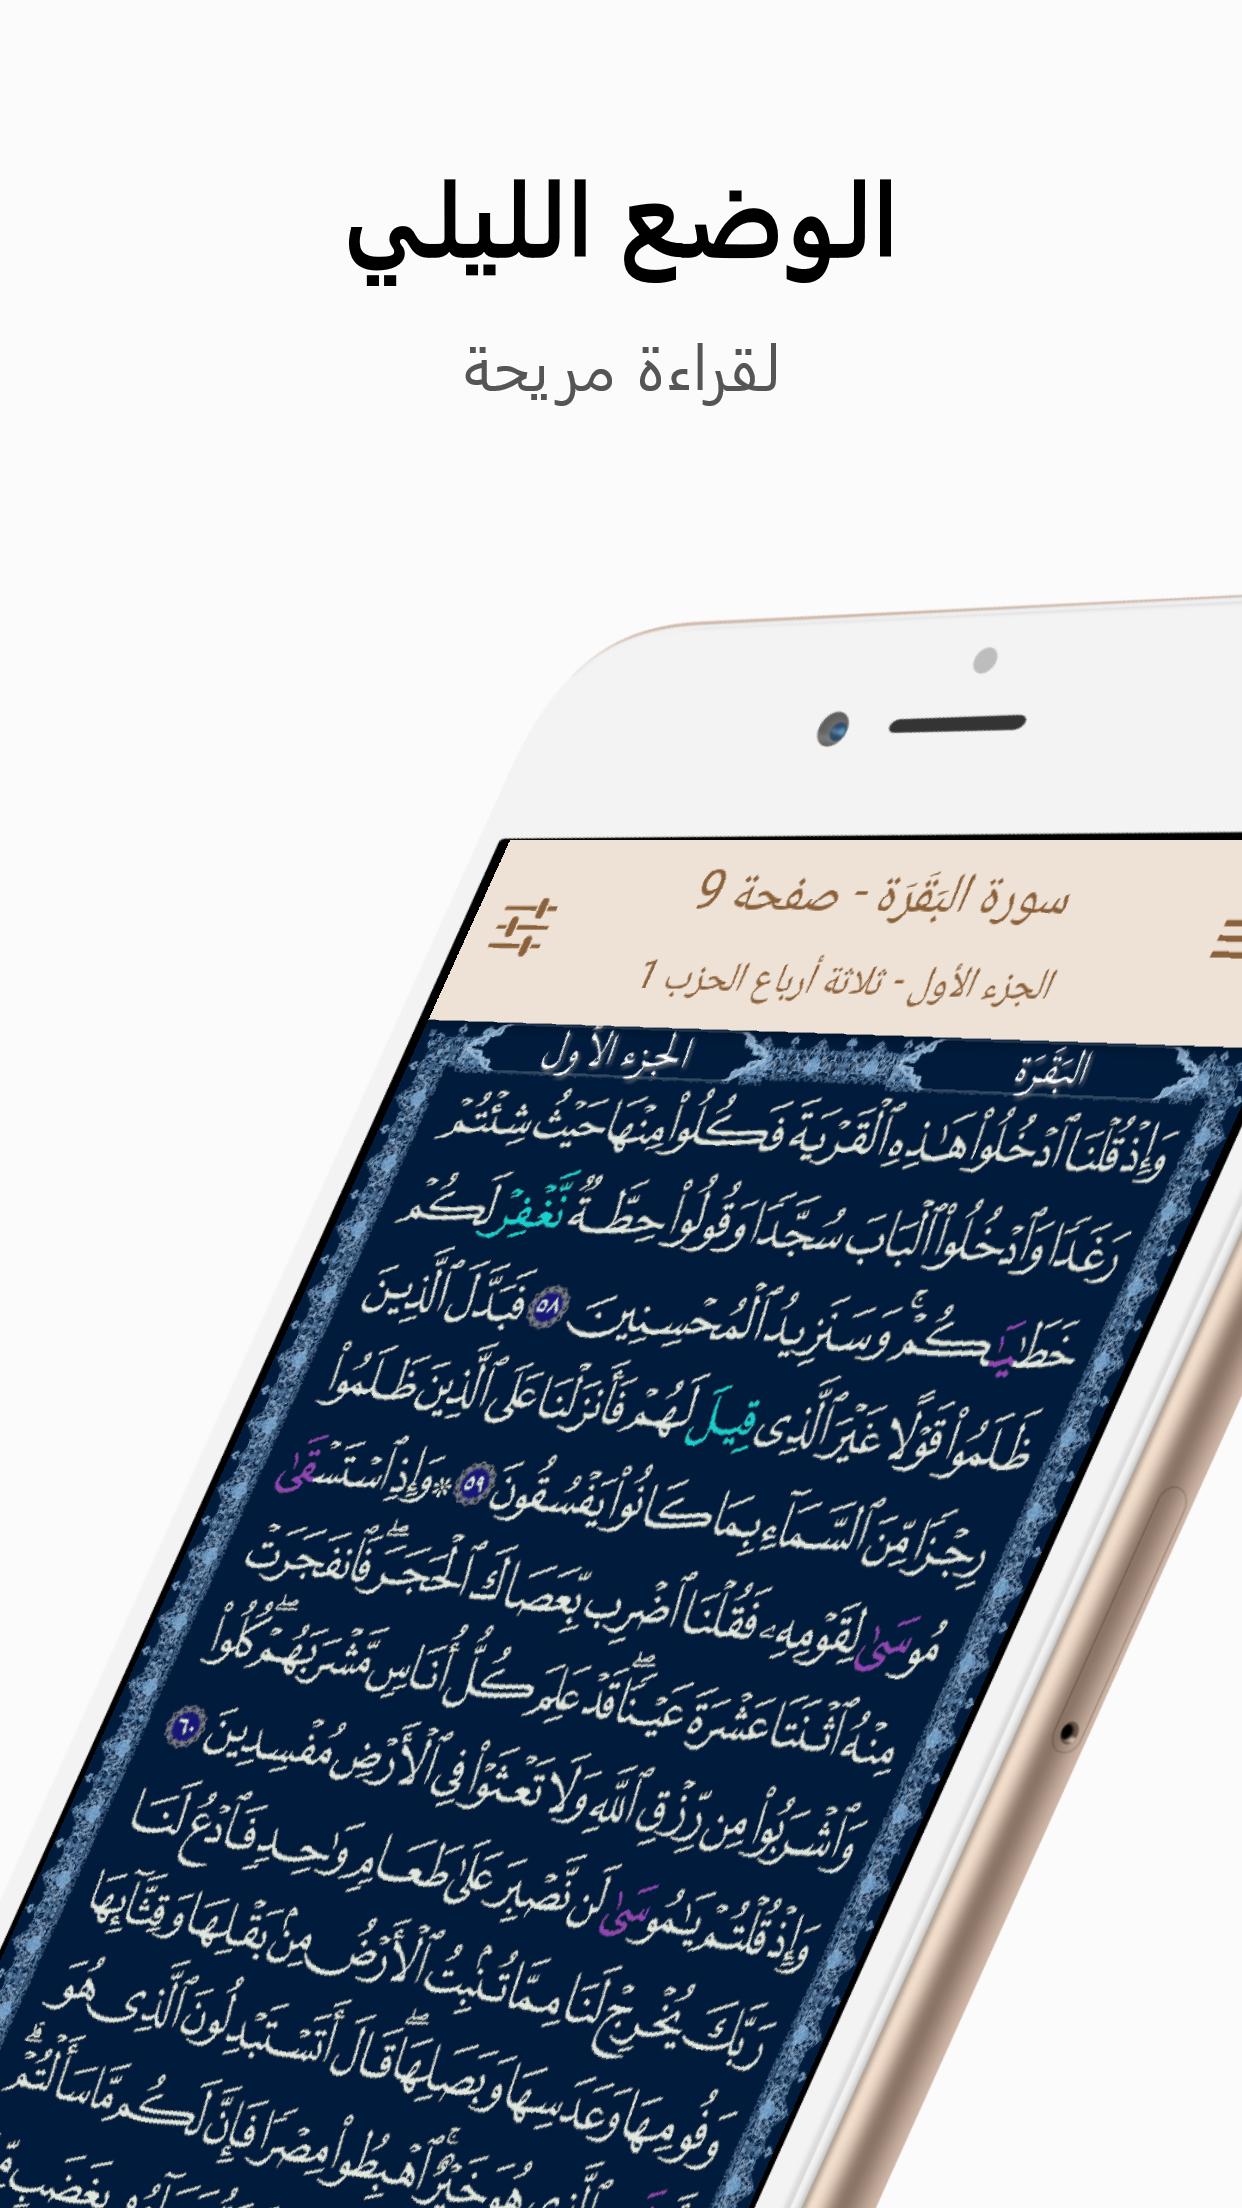 الوضع الليلي
لقراءة مريحة
سورة البَقَرَة - صفحة 9
الجزء الأول - ثلاثة أرباع الحزب 1
البَقَرَة
الجزء الأول
وَإِذْ قُلْنَا ٱدْخُلُوا۟ هَـٰذِهِ ٱلْقَرْيَةَ فَكُلُوا۟ مِنْهَا حَيْثُ شِئْتُمْ
رَغَدًا وَٱدْخُلُوا۟ ٱلْبَابَ سُجَّدًا وَقُولُوا۟ حِطَّةٌ نَّغْفِرْ لَكُمْ
خَطَـٰيَـٰكُمْ ۚ وَسَنَزِيدُ ٱلْمُحْسِنِينَ ٥٨ فَبَدَّلَ ٱلَّذِينَ
ظَلَمُوا۟ قَوْلًا غَيْرَ ٱلَّذِى قِيلَ لَهُمْ فَأَنزَلْنَا عَلَى ٱلَّذِينَ ظَلَمُوا۟
رِجْزًا مِّنَ ٱلسَّمَآءِ بِمَا كَانُوا۟ يَفْسُقُونَ ٥٩ * وَإِذِ ٱسْتَسْقَىٰ
مُوسَىٰ لِقَوْمِهِۦ فَقُلْنَا ٱضْرِب بِّعَصَاكَ ٱلْحَجَرَ ۖ فَٱنفَجَرَتْ
مِنْهُ ٱثْنَتَا عَشْرَةَ عَيْنًا ۖ قَدْ عَلِمَ كُلُّ أُنَاسٍ مَّشْرَبَهُمْ ۖ كُلُوا۟
وَٱشْرَبُوا۟ مِن رِّزْقِ ٱللَّهِ وَلَا تَعْثَوْا۟ فِى ٱلْأَرْضِ مُفْسِدِينَ ٦٠
وَإِذْ قُلْتُمْ يَـٰمُوسَىٰ لَن نَّصْبِرَ عَلَىٰ طَعَامٍ وَٰحِدٍ فَٱدْعُ لَنَا
رَبَّكَ يُخْرِجْ لَنَا مِمَّا تُنۢبِتُ ٱلْأَرْضُ مِنۢ بَقْلِهَا وَقِثَّآئِهَا
وَفُومِهَا وَعَدَسِهَا وَبَصَلِهَا ۖ قَالَ أَتَسْتَبْدِلُونَ ٱلَّذِى هُوَ
ٱلَّذِى هُوَ خَيْرٌ ۚ ٱهْبِطُوا۟ مِصْرًا فَإِنَّ لَكُم مَّا سَأَلْتُمْ ۗ
بِغَضَبٍ